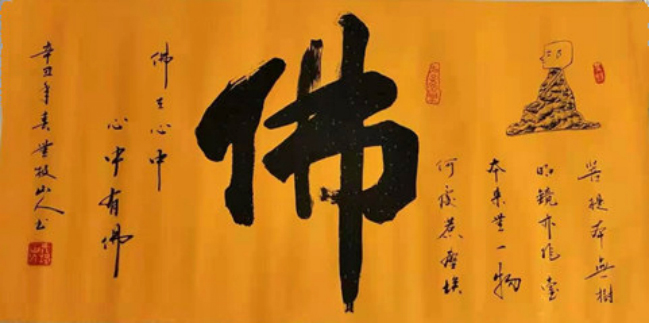 菩提本無樹
明鏡亦非臺
本來無一物
何處惹塵埃
佛
佛在心中
心中有佛
辛丑年春
山人书